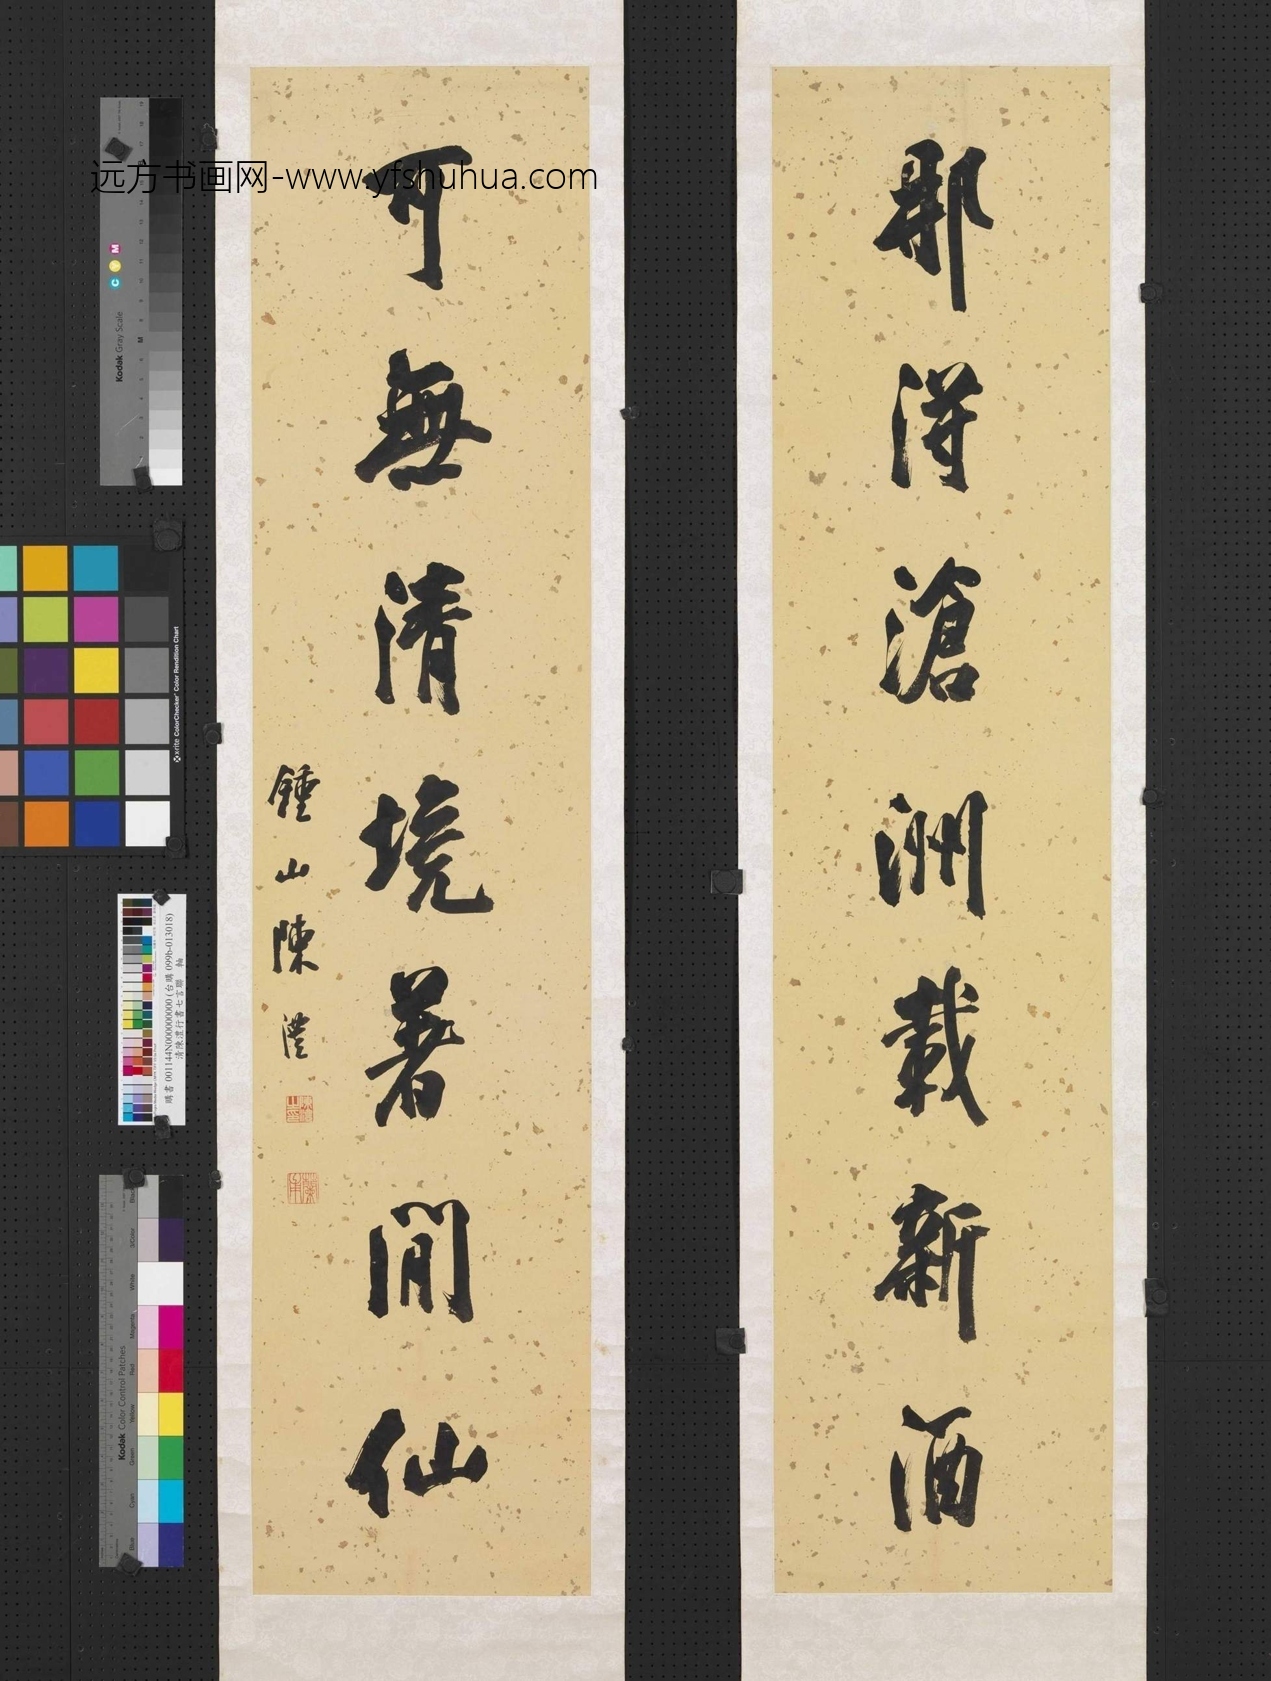 那得滄洲載新酒
可無清境著閒仙
鍾山陳澧
远方书画网-www.yfshuhua.com
Kodak Gray Scale
C Y M
xrite ColorChecker Color Rendition Chart
購書 001144N000000000 (台購 099b-013018)
清陳澧行書七言聯 軸
Kodak Color Control Patches
Blue
Cyan
Green
Yellow
Red
Magenta
White
3/Color
Black